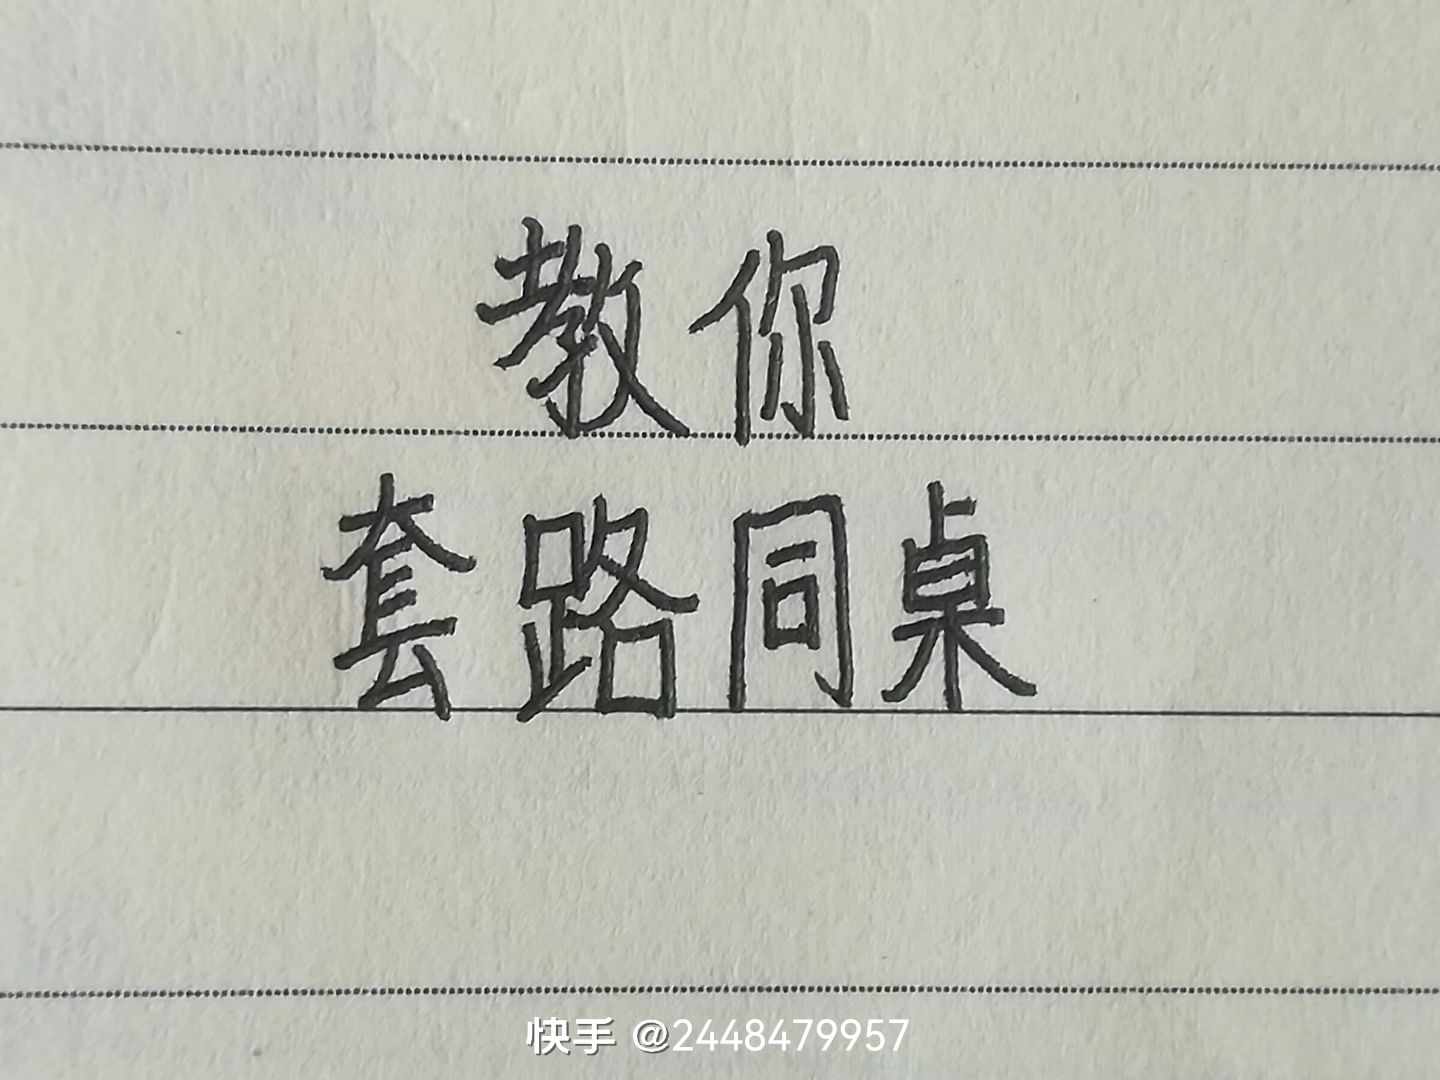 教你
套路同桌
快手 @2448479957